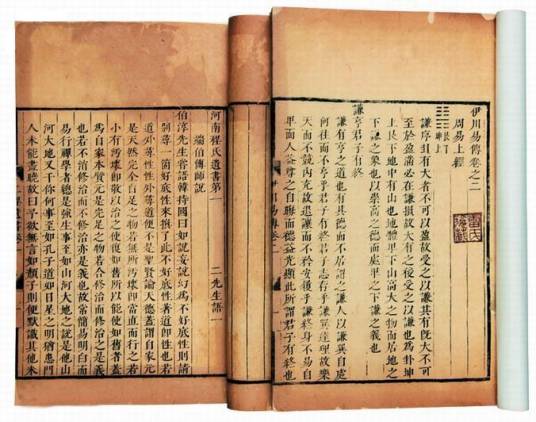 伊川易傳卷之二
周易上經
艮下 坤上
謙序卦有大者不可以盈故受之以謙其有旣大不可
至於盈滿必在謙損故大有之後受之以謙也為卦坤
上艮下地中有山也地體卑下山高大之物而居地之
下謙之象也以崇高之德而處卑之下謙之義也
謙亨君子有終
謙有亨之道也有其德而不居謂之謙人以謙巽自處
何往而不亨乎君子有終君子志存乎謙巽達理故樂
天而不競內充故退讓而不矜安履乎謙終身不易自
卑而人益尊之自晦而德益光顯此所謂君子有終也
伊川易傳卷二
河南程氏遺書第一 二先生語一
端伯傳師說
伯淳先生嘗語韓持國曰如說妄說幻為不好底性則請
別尋一箇好底性來換了此不好底性著道即性也若
道外尋性性外尋道便不是聖賢論天德蓋謂自家元
是天然完全自足之物若無所污壞即當直而行之若
小有污壞即敬以治之使復如舊所以能使如舊者蓋
為自家本質元是完足之物若合修治而修治之是義
也若不消修治而不修治亦是義也故常簡易明白而
易行禪學者總是強生事至如山河大地之說是他山
河大地又干你何事至如孔子道如日星之明猶患門
人未能盡曉故曰予欲無言如顏子則便默識其他未